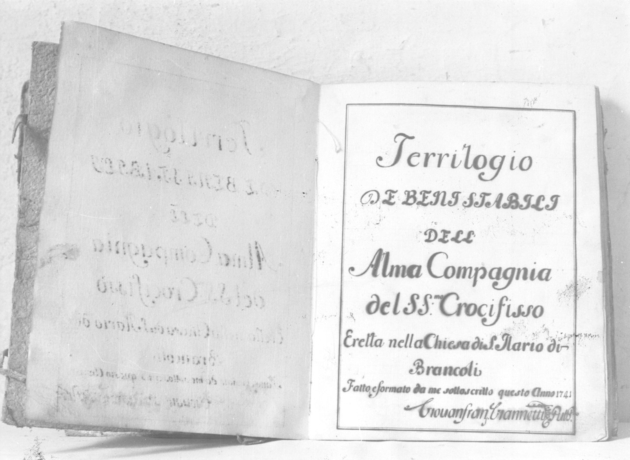 Terrilogio
DE BENI STABILI
DELL
Alma Compagnia
del SS.mo Crocifisso
Eretta nella Chiesa di S. Ilario di
Brancoli
Fatto, e formato da me sottoscritto questo Anno 1741